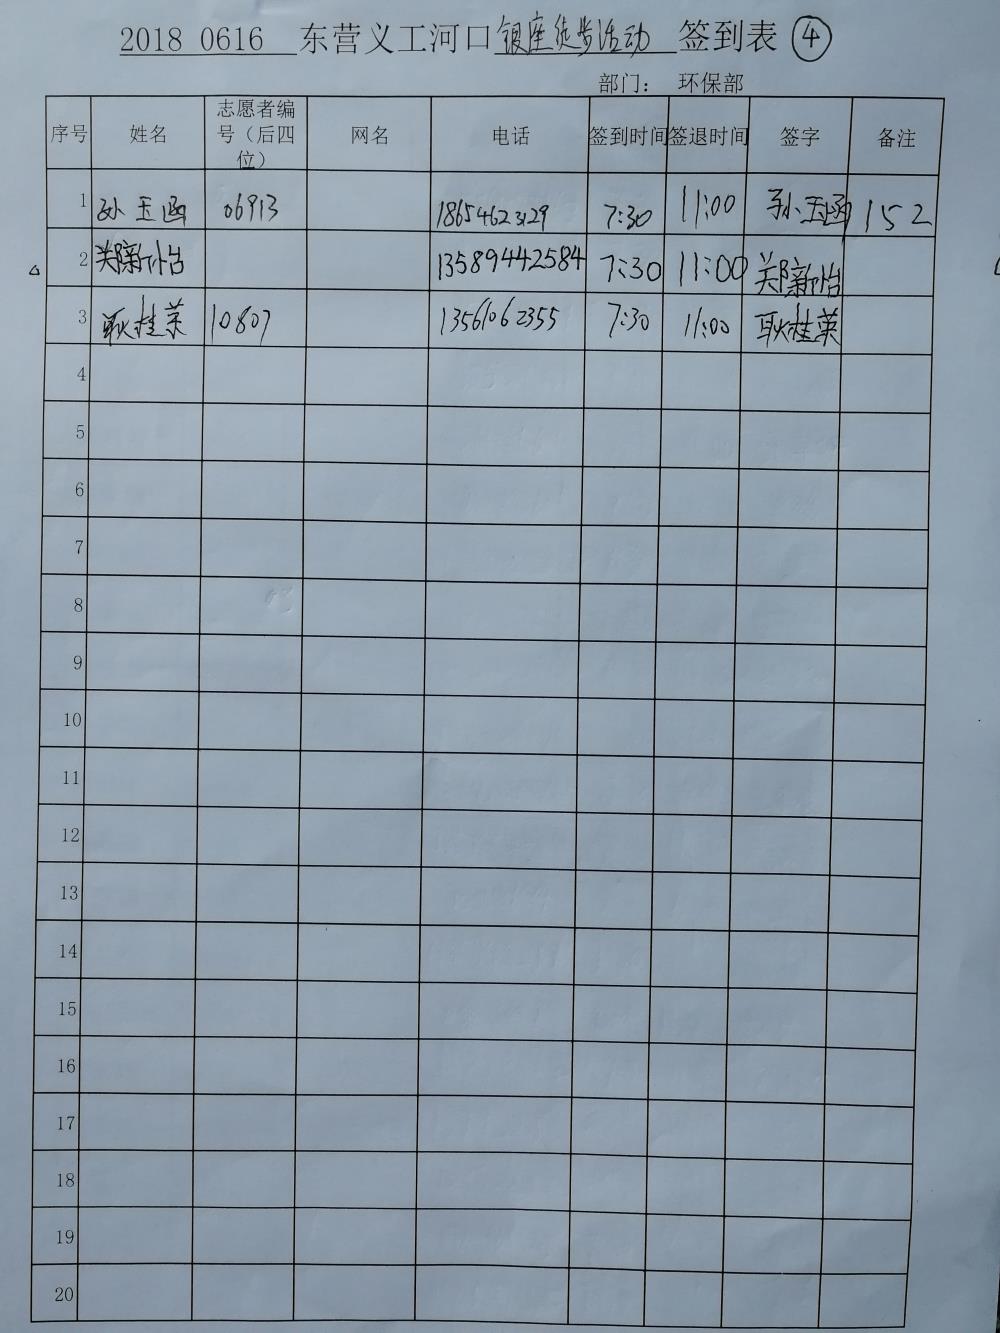 2018 0616 东营义工河口银座徒步活动 签到表 ④
部门： 环保部
序号 姓名 志愿者编号（后四位） 网名 电话 签到时间 签退时间 签字 备注
1 孙玉函 06913 18654623129 7:30 11:00 孙玉函 152
2 郑新怡 13589442584 7:30 11:00 郑新怡
3 耿桂荣 10807 13561062355 7:30 11:00 耿桂荣
4
5
6
7
8
9
10
11
12
13
14
15
16
17
18
19
20